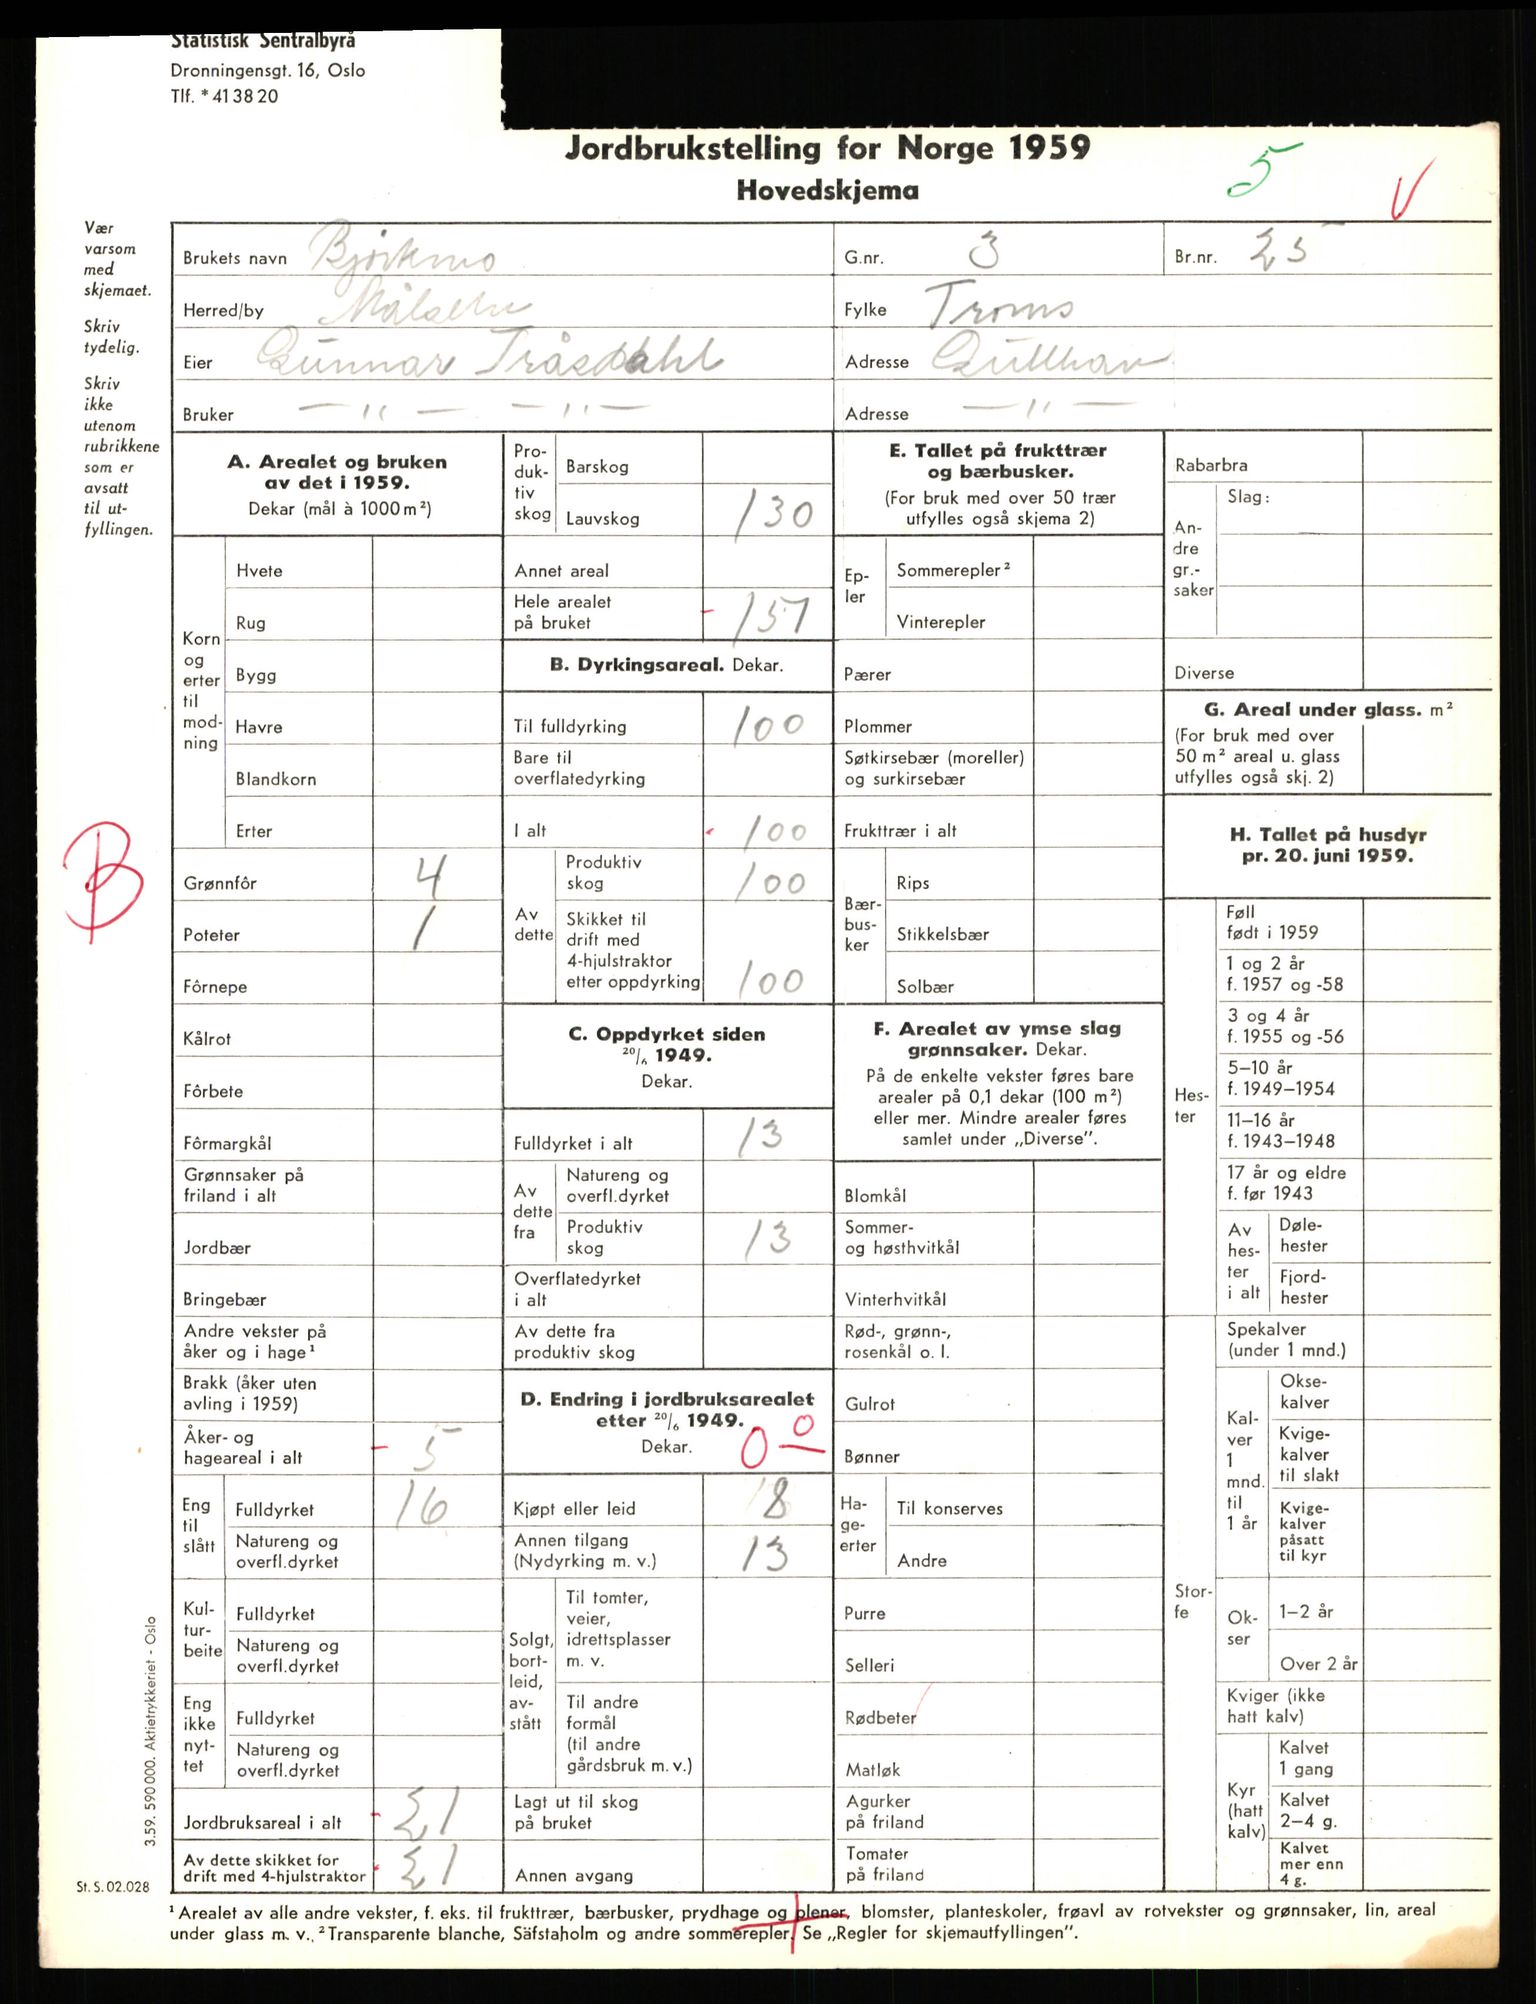 Statistisk Sentralbyrå
Dronningensgt. 16, Oslo
Tlf. * 41 38 20
Jordbrukstelling for Norge 1959
Hovedskjema
5
V
Vær
varsom
med
skjemaet.
Skriv
tydelig.
Skriv
ikke
utenom
rubrikkene
som er
avsatt
til ut-
fyllingen.
Brukets navn Bjørkmo
G.nr. 3
Br.nr. 25
Herred/by Målselv
Fylke Troms
Eier Gunnar Tråsdahl
Adresse Gullhav
Bruker — " — — " —
Adresse — " —
A. Arealet og bruken
av det i 1959.
Dekar (mål à 1000 m²)
Korn
og
erter
til
mod-
ning
Hvete
Rug
Bygg
Havre
Blandkorn
Erter
B
Grønnfôr 4
Poteter 1
Fôrnepe
Kålrot
Fôrbete
Fôrmargkål
Grønnsaker på
friland i alt
Jordbær
Bringebær
Andre vekster på
åker og i hage¹
Brakk (åker uten
avling i 1959)
Åker- og
hageareal i alt - 5
Eng
til
slått
Fulldyrket 16
Natureng og
overfl.dyrket
Kul-
tur-
beite
Fulldyrket
Natureng og
overfl.dyrket
Eng
ikke
nyt-
tet
Fulldyrket
Natureng og
overfl.dyrket
Jordbruksareal i alt - 21
Av dette skikket for
drift med 4-hjulstraktor 21
Pro-
duk-
tiv
skog
Barskog
Lauvskog 130
Annet areal
Hele arealet
på bruket - 151
B. Dyrkingsareal. Dekar.
Til fulldyrking 100
Bare til
overflatedyrking
I alt 100
Av
dette
Produktiv
skog 100
Skikket til
drift med
4-hjulstraktor
etter oppdyrking 100
C. Oppdyrket siden
20/6 1949.
Dekar.
Fulldyrket i alt 13
Av
dette
fra
Natureng og
overfl.dyrket
Produktiv
skog 13
Overflatedyrket
i alt
Av dette fra
produktiv skog
D. Endring i jordbruksarealet
etter 20/6 1949.
Dekar. 0 0
Kjøpt eller leid 8
Annen tilgang
(Nydyrking m. v.) 13
Solgt,
bort-
leid,
av-
stått
Til tomter,
veier,
idrettsplasser
m. v.
Til andre
formål
(til andre
gårdsbruk m. v.)
Lagt ut til skog
på bruket
Annen avgang
E. Tallet på frukttrær
og bærbusker.
(For bruk med over 50 trær
utfylles også skjema 2)
Ep-
ler
Sommerepler²
Vinterepler
Pærer
Plommer
Søtkirsebær (moreller)
og surkirsebær
Frukttrær i alt
Bær-
bus-
ker
Rips
Stikkelsbær
Solbær
F. Arealet av ymse slag
grønnsaker. Dekar.
På de enkelte vekster føres bare
arealer på 0,1 dekar (100 m²)
eller mer. Mindre arealer føres
samlet under „Diverse”.
Blomkål
Sommer-
og høsthvitkål
Vinterhvitkål
Rød-, grønn-,
rosenkål o. l.
Gulrot
Bønner
Ha-
ge-
erter
Til konserves
Andre
Purre
Selleri
Rødbeter
Matløk
Agurker
på friland
Tomater
på friland
Rabarbra
An-
dre
gr.-
saker
Slag:
Diverse
G. Areal under glass. m²
(For bruk med over
50 m² areal u. glass
utfylles også skj. 2)
H. Tallet på husdyr
pr. 20. juni 1959.
Hes-
ter
Føll
født i 1959
1 og 2 år
f. 1957 og -58
3 og 4 år
f. 1955 og -56
5–10 år
f. 1949–1954
11–16 år
f. 1943–1948
17 år og eldre
f. før 1943
Av
hes-
ter
i alt
Døle-
hester
Fjord-
hester
Stor-
fe
Spekalver
(under 1 mnd.)
Kal-
ver
1
mnd.
til
1 år
Okse-
kalver
Kvige-
kalver
til slakt
Kvige-
kalver
påsatt
til kyr
Ok-
ser
1–2 år
Over 2 år
Kviger (ikke
hatt kalv)
Kyr
(hatt
kalv)
Kalvet
1 gang
Kalvet
2–4 g.
Kalvet
mer enn
4 g.
3.59. 590 000. Aktietrykkeriet - Oslo
St. S. 02.028
¹ Arealet av alle andre vekster, f. eks. til frukttrær, bærbusker, prydhage og plener, blomster, planteskoler, frøavl av rotvekster og grønnsaker, lin, areal
under glass m. v. ² Transparente blanche, Säfstaholm og andre sommerepler. Se „Regler for skjemautfyllingen”.